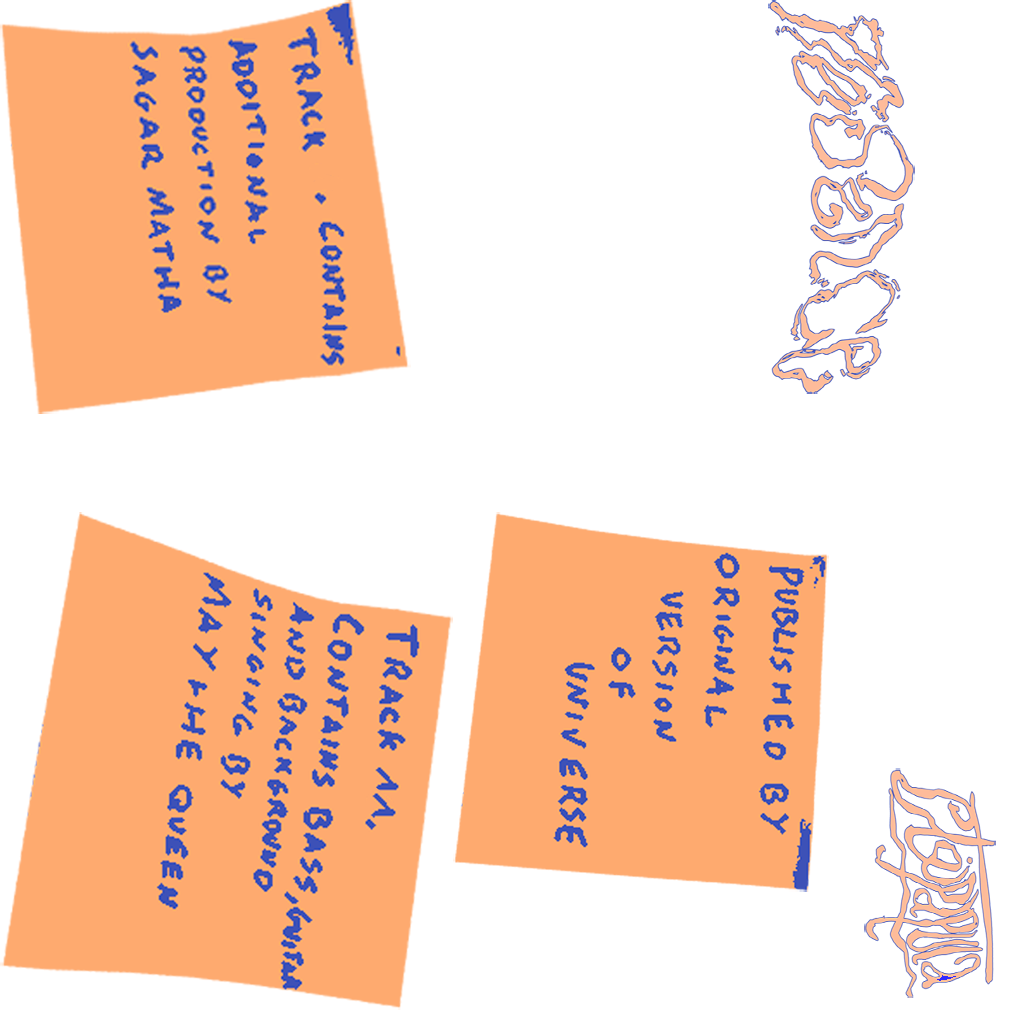 TRACK . CONTAINS
ADDITIONAL
PRODUCTION BY
SAGAR MATHA
TRACK 11.
CONTAINS BASS, GUITAR
AND BACKGROUND
SINGING BY
MAY THE QUEEN
PUBLISHED BY
ORIGINAL
VERSION
OF
UNIVERSE